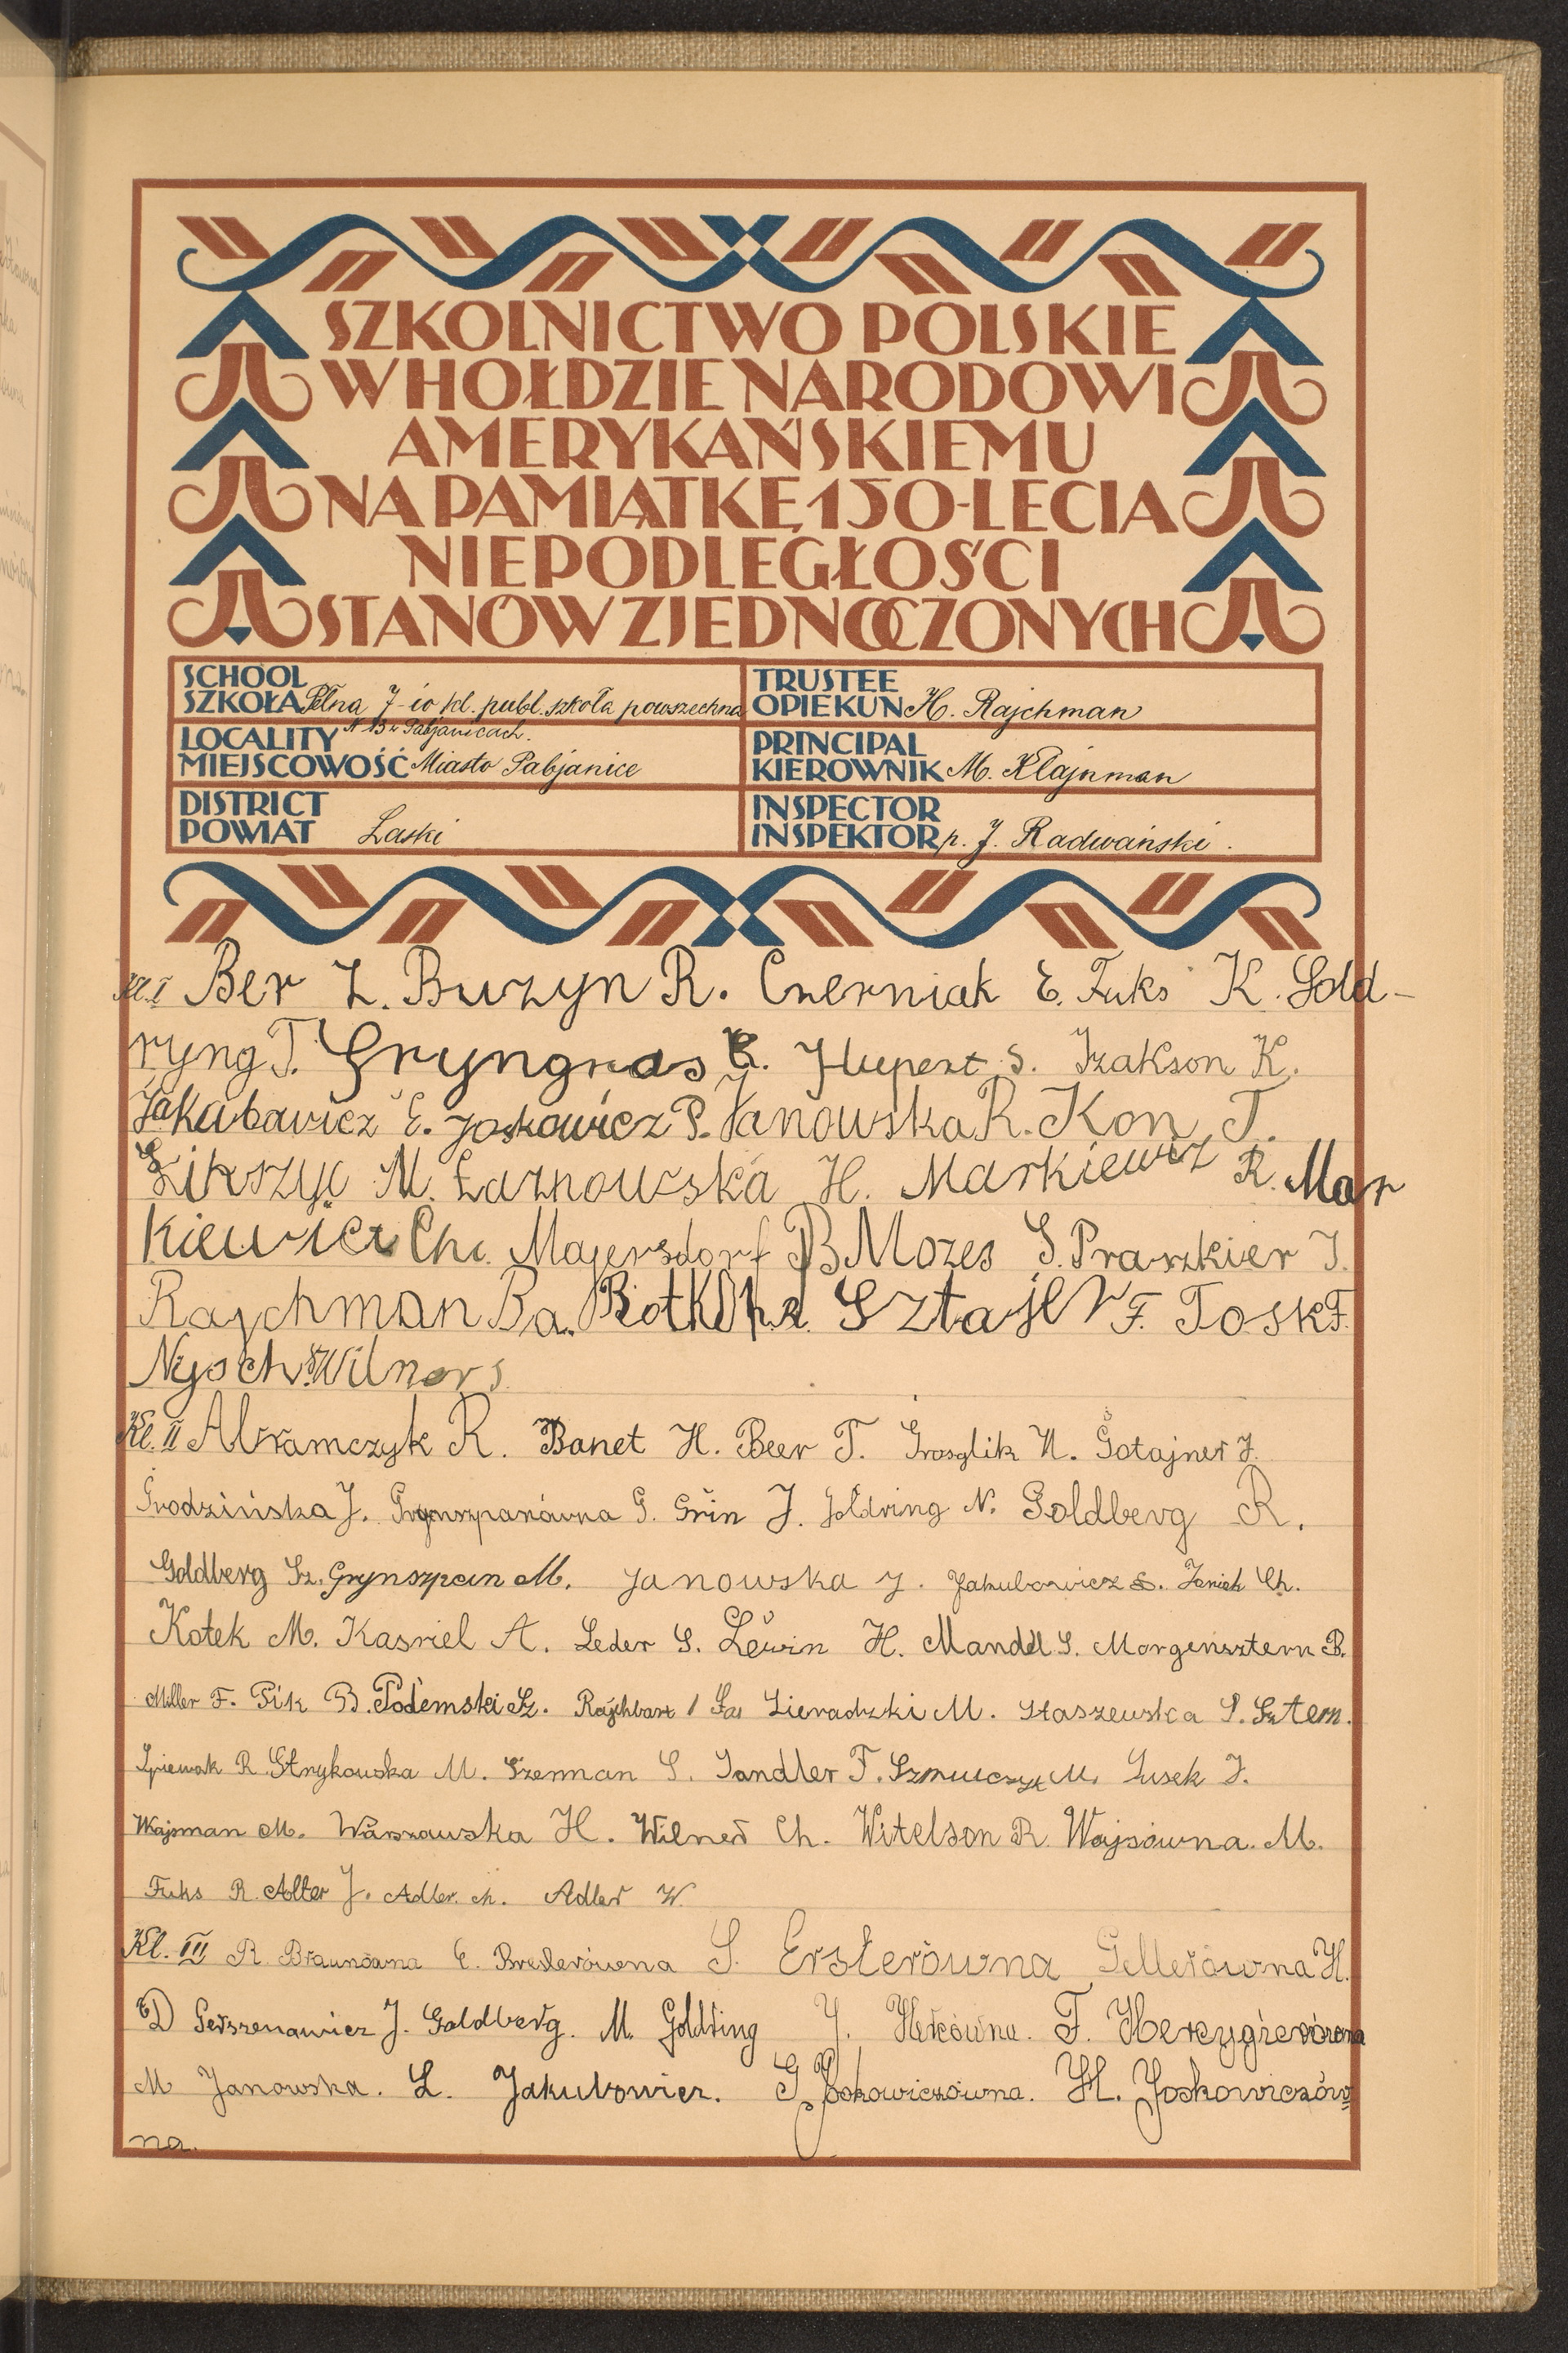 SZKOLNICTWO POLSKIE
W HOŁDZIE NARODOWI
AMERYKAŃSKIEMU
NA PAMIĄTKĘ 150-LECIA
NIEPODLEGŁOŚCI
STANÓW ZJEDNOCZONYCH
SCHOOL
SZKOŁA Pełna 7-io kl. publ. szkoła powszechna
N 13 w Pabjanicach.
TRUSTEE
OPIEKUN H. Rajchman
LOCALITY
MIEJSCOWOŚĆ Miasto Pabjanice
PRINCIPAL
KIEROWNIK M. Klajnman
DISTRICT
POWIAT Łaski
INSPECTOR
INSPEKTOR p. J. Radwański.
Kl. I Ber Z. Buzyn R. Czerniak E. Fuks K. Gold-
ryng T. Gryngras R. Hupert S. Izakson K.
Jakubowicz E. Joskowicz P. Janowska R. Kon T.
Lipszyc M. Łaznowska H. Markiewicz R. Mar
kiewicz Ch. Majersdorf B Mozes S. Praszkier J.
Rajchman Ba. Sztajer F. Tosk F.
Wilner S
Kl. II Abramczyk R. Banet H. Beer T. Grosglik N. Gotajner J.
Grodzińska J. Grynszpanówna G. Grin J. Goldring N. Goldberg R.
Goldberg Sz. Grynszpan M. Janowska J. Jakubowicz S. Ch.
Kotek M. Kasriel A. Leder S. Lewin H. Mandel S. Morgensztern B.
Miller F. Pik B. Podemski Sz. Rajchbart Sieradzki M. Staszewska S. Sztern.
Śpiewak R. Strykowska M. Szenman S. Sandler F. Szmulczyk M. Susek J.
Wajsman M. Warszawska H. Wilner Ch. Witelson R. Wajsówna. M.
Fuks R. Alter J. Adler. ch. Adler W.
Kl. III R. Braunówna E. Breslerówna S. Ersterówna Gellerówna H.
D Gerszenowicz J. Goldberg. M. Goldring Y. Hercówna. F.
M Janowska. L. Jakubowicz. G Joskowiczówna. H. Joskowiczów
na.